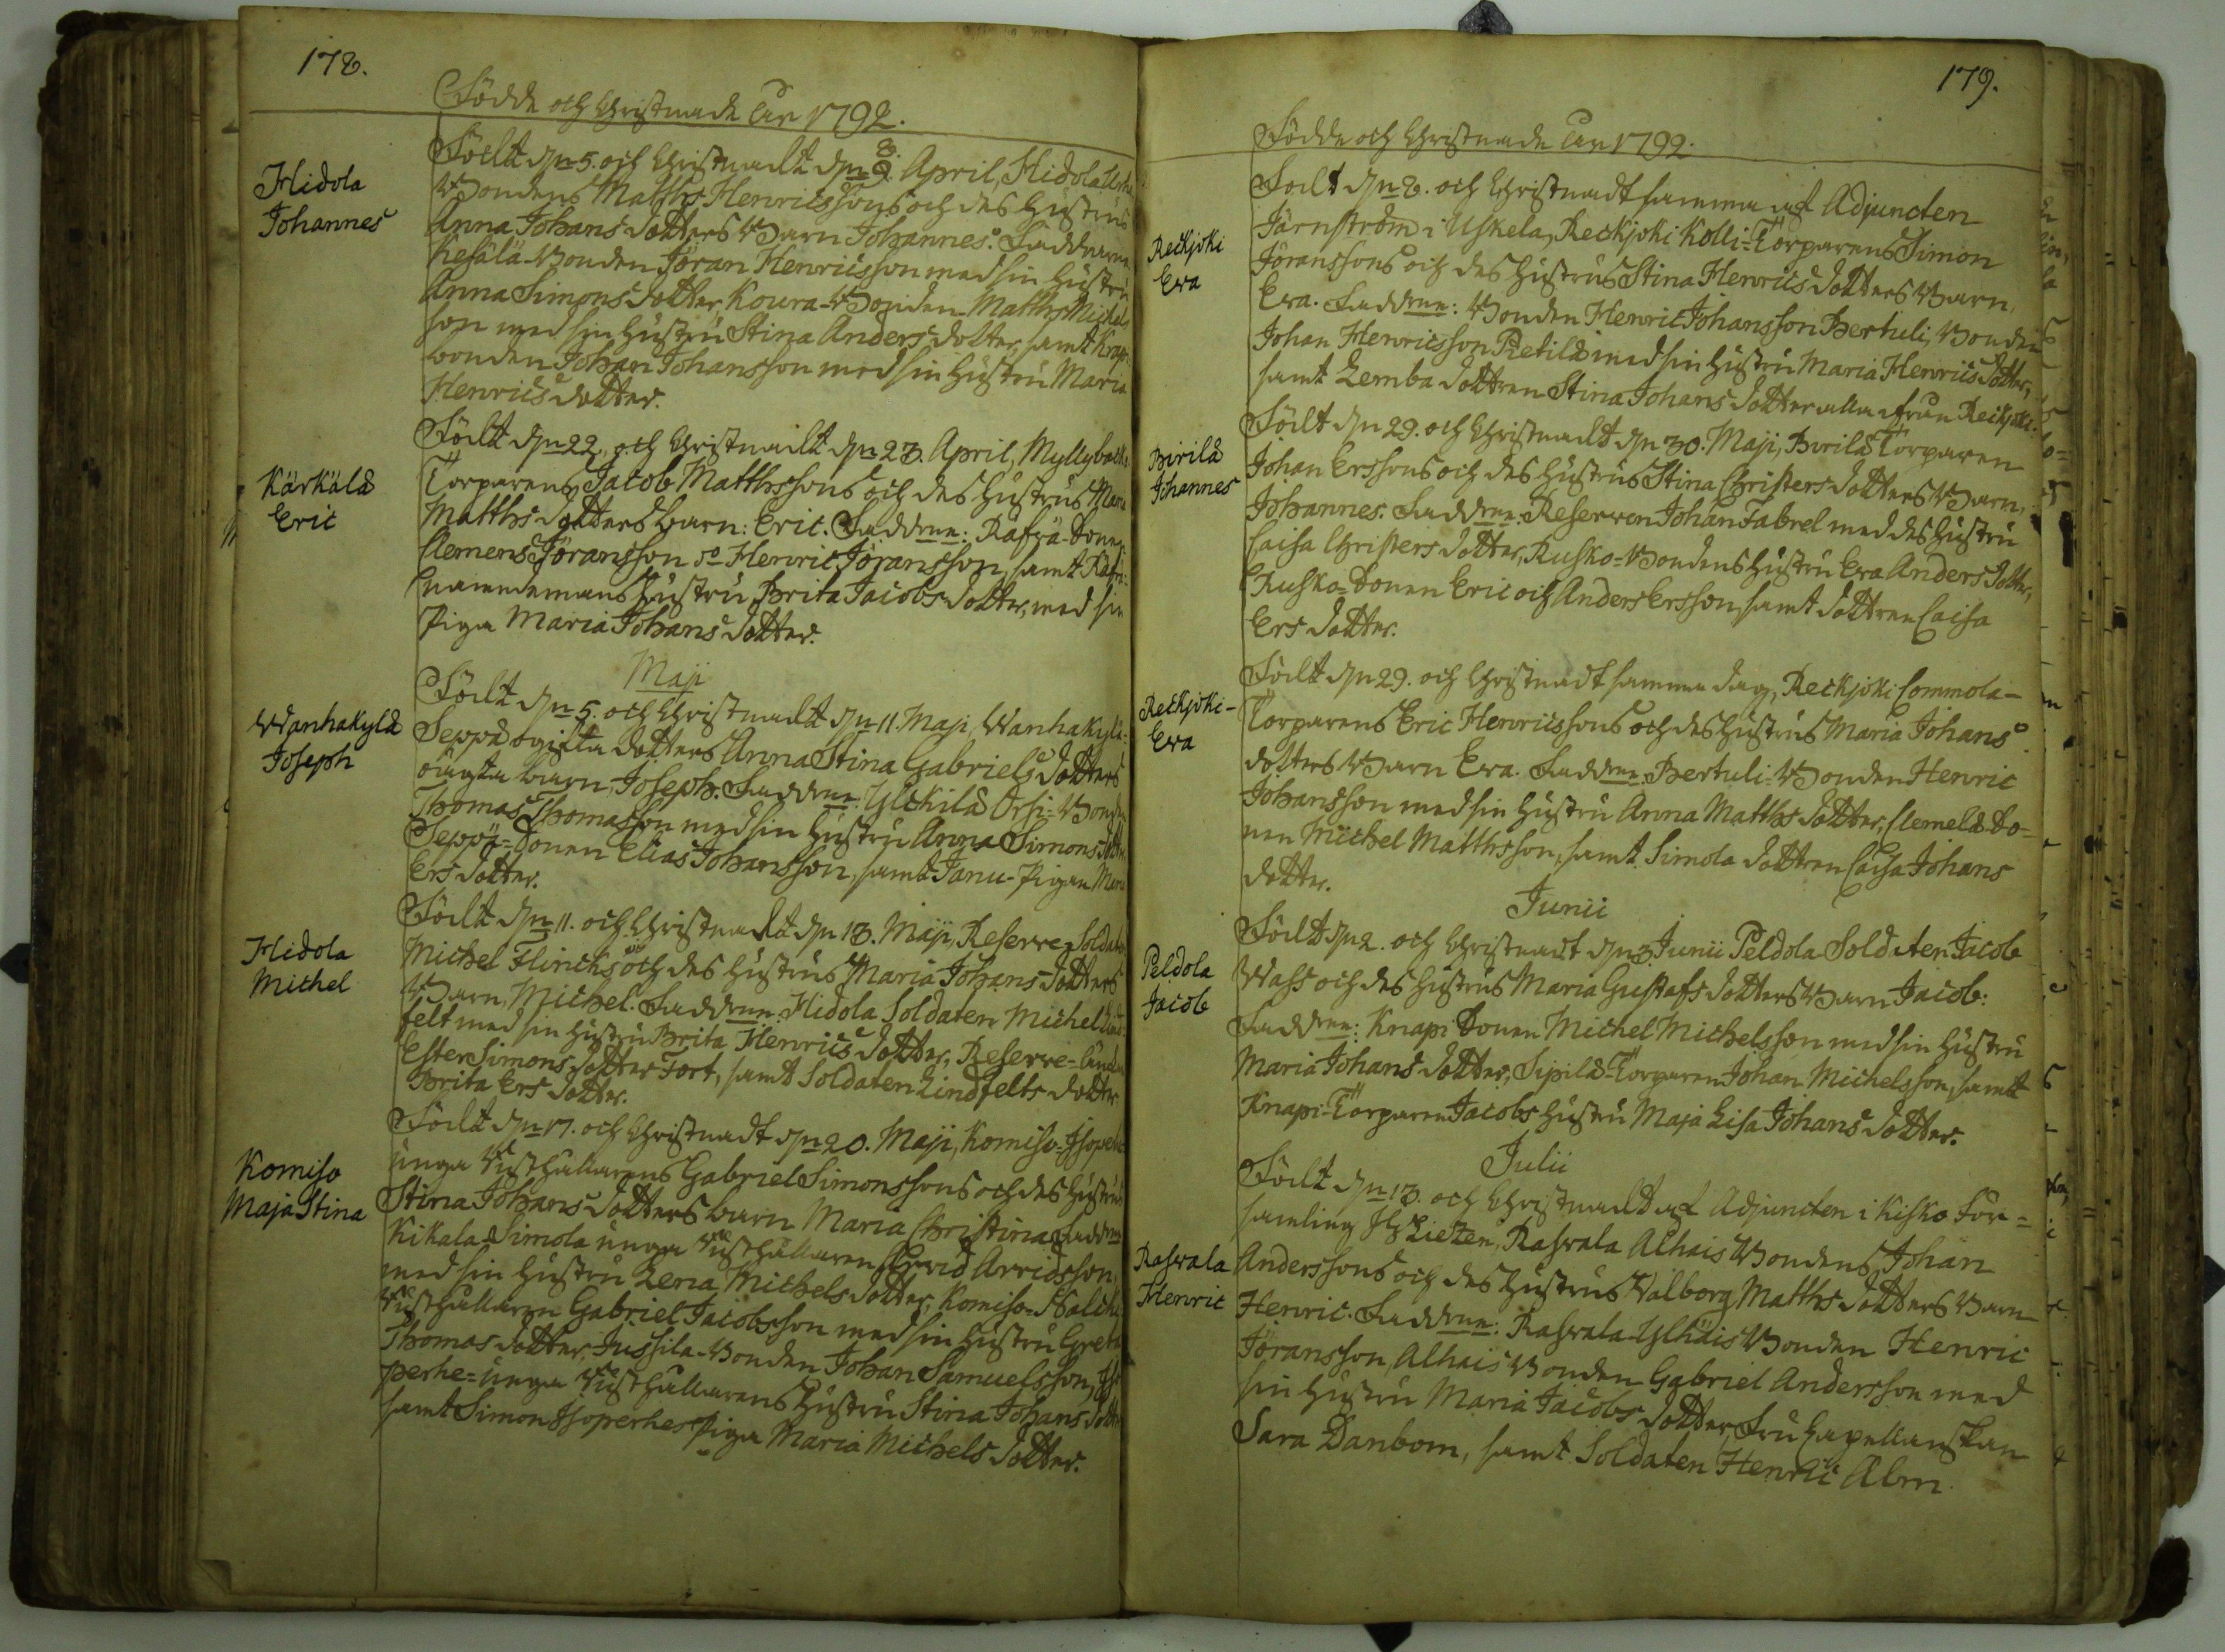 178.
Födde och Christnade Åhr 1792.
Hidola
Johannes
Födt d͞n 5. och Christnadt d͞n 8. April, Hidola
Bondens Matths Henricssons och des Hustrus
Anna Johans dotters Barn Johannes. Faddrarne
Kesälä-Bonden Jöran Henricsson med sin Hustru
Anna Simons dotter, Koura-Bonden Matths Michels
son med sin Hustru Stina Anders dotter, samt Knapi
bonden Johan Johansson med sin Hustru Maria
Henrics dotter.
Kärkälä
Eric
Födt d͞n 22. och Christnadt d͞n 23. April, Myllybacka
Torparens Jacob Matthssons och des Hustrus Maria
Matths dotters barn: Eric. Faddrne: Rafvä-Sonen
Clemens Jöransson d:o Henric Jöransson, samt
Nämndemans Hustru Brita Jacobs dotter, med sin
Piga Maria Johans dotter.
Maji
Wanhakylä
Joseph
Födt d͞n 5. och Christnadt d͞n 11. Maji, Wanhakylä-
Seppä ogifta dotters Anna Stina Gabriels dotters
oägta barn, Joseph. Faddrne: Ylikilä Orsi-Bonden
Thomas Thomasson med sin Hustru Anna Simons dotter
Seppä-Sonen Elias Johansson, samt Janu-Pigan Maria
Ers dotter.
Hidola
Michel
Födt d͞n 11. och Christnadt d͞n 13. Maji, Reserve-Soldatens
Michel Flincks och des Hustrus Maria Johans dotters
Barn, Michel. Faddrne: Hidola Soldaten Michel Lind-
felt med sin Hustru Brita Henrics dotter, Reserve-
Ester Simons dotter Fort, samt Soldaten Lindfelts dotter
Brita Ers dotter.
Komiso
Maja Stina
Födt d͞n 17. och Christnadt d͞n 20. Maji, Komiso-Isoperhe
unga Rusthållarens Gabriel Simonssons och des Hustrus
Stina Johans dotters barn Maria Christina. Faddrne
Kikala-Simola unga Rusthållaren Arvid Arvidsson,
med sin Hustru Lena Michels dotter, Komiso-
Rusthållaren Gabriel Jacobsson med sin Hustru Greta
Thomas dotter, Jussila-Bonden Johan Samuelsson, Iso-
perhe-unga Rusthållarens Hustru Stina Johans dotter
samt Simon Isoperhes Piga Maria Michels dotter.
179.
Födde och Christnade Åhr 1792.
Reckjoki
Eva
Födt d͞n 8. och Christnadt samma af Adjuncten
Järnström i Uskela, Reckjoki Kolli-Torparens Simon
Jöranssons och des Hustrus Stina Henrics dotters Barn,
Eva. Faddrne: Bonden Henric Johansson Bertuli, Bonden
Johan Henricsson Pietilä med sin Hustru Maria Henrics dotter,
samt Lemba dottren Stina Johans dotter alla ifrån Reckjoki.
Pirilä
Johannes
Födt d͞n 29. och Christnadt d͞n 30. Maji, Pirilä Torparen
Johan Erssons och des Hustrus Stina Christers dotters Barn,
Johannes. Faddrne: Reserven Johan Fabrel med des Hustru
Caisa Christers dotter, Rusko-Bondens Hustru Eva Anders dotter,
Rusko-Sonen Eric och Anders Ersson, samt dottren Caisa
Ers dotter.
Reckjoki-
Eva
Födt d͞n 29. och Christnadt samma dag, Reckjoki Commola-
Torparens Eric Henricssons och des Hustrus Maria Johans
dotters Barn Eva. Faddrne: Bertuli-Bonden Henric
Johansson med sin Hustru Anna Matths dotter, Clemelä So-
nen Michel Matthsson, samt Simola dottren Caisa Johans
dotter.
Junii
Peldola
Jacob
Födt d͞n 2. och Christnadt d͞n 3. Junii Peldola Soldaten Jacob
Wass och des Hustrus Maria Gustafs dotters Barn Jacob:
Faddrne: Knapi Sonen Michel Michelsson med sin Hustru
Maria Johans dotter, Sipilä-Torparen Johan Michelsson, samt
Knapi-Torparen Jacobs Hustru Maja Lisa Johans dotter.
Julii
Rasvala
Henric
Födt d͞n 13. och Christnadt af Adjuncten i Kisko För-
samling Hr Zietzen, Rasvala Alhais Bondens Johan
Anderssons och des Hustrus Valborg Matths dotters Barn
Henric. Faddrne: Rasvala-Ylhäis Bonden Henric
Jöransson, Alhais Bonden Gabriel Andersson med
sin Hustru Maria Jacobs dotter, Fru Capellanskan
Sara Danbom, samt Soldaten Henric Alm.